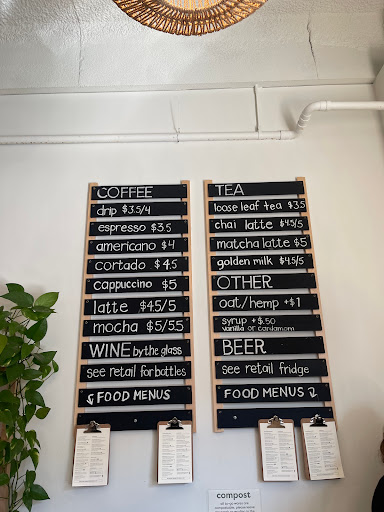 COFFEE
drip $3.5/4
espresso $3.5
americano $4
cortado $4.5
cappuccino $5
latte $4.5/5
mocha $5/5.5
WINE by the glass
see retail for bottles
FOOD MENUS
TEA
loose leaf tea $3.5
chai latte $4.5/5
matcha latte $5
golden milk $4.5/5
OTHER
oat/hemp +$1
syrup +$.50
vanilla or cardamom
BEER
see retail fridge
FOOD MENUS
compost